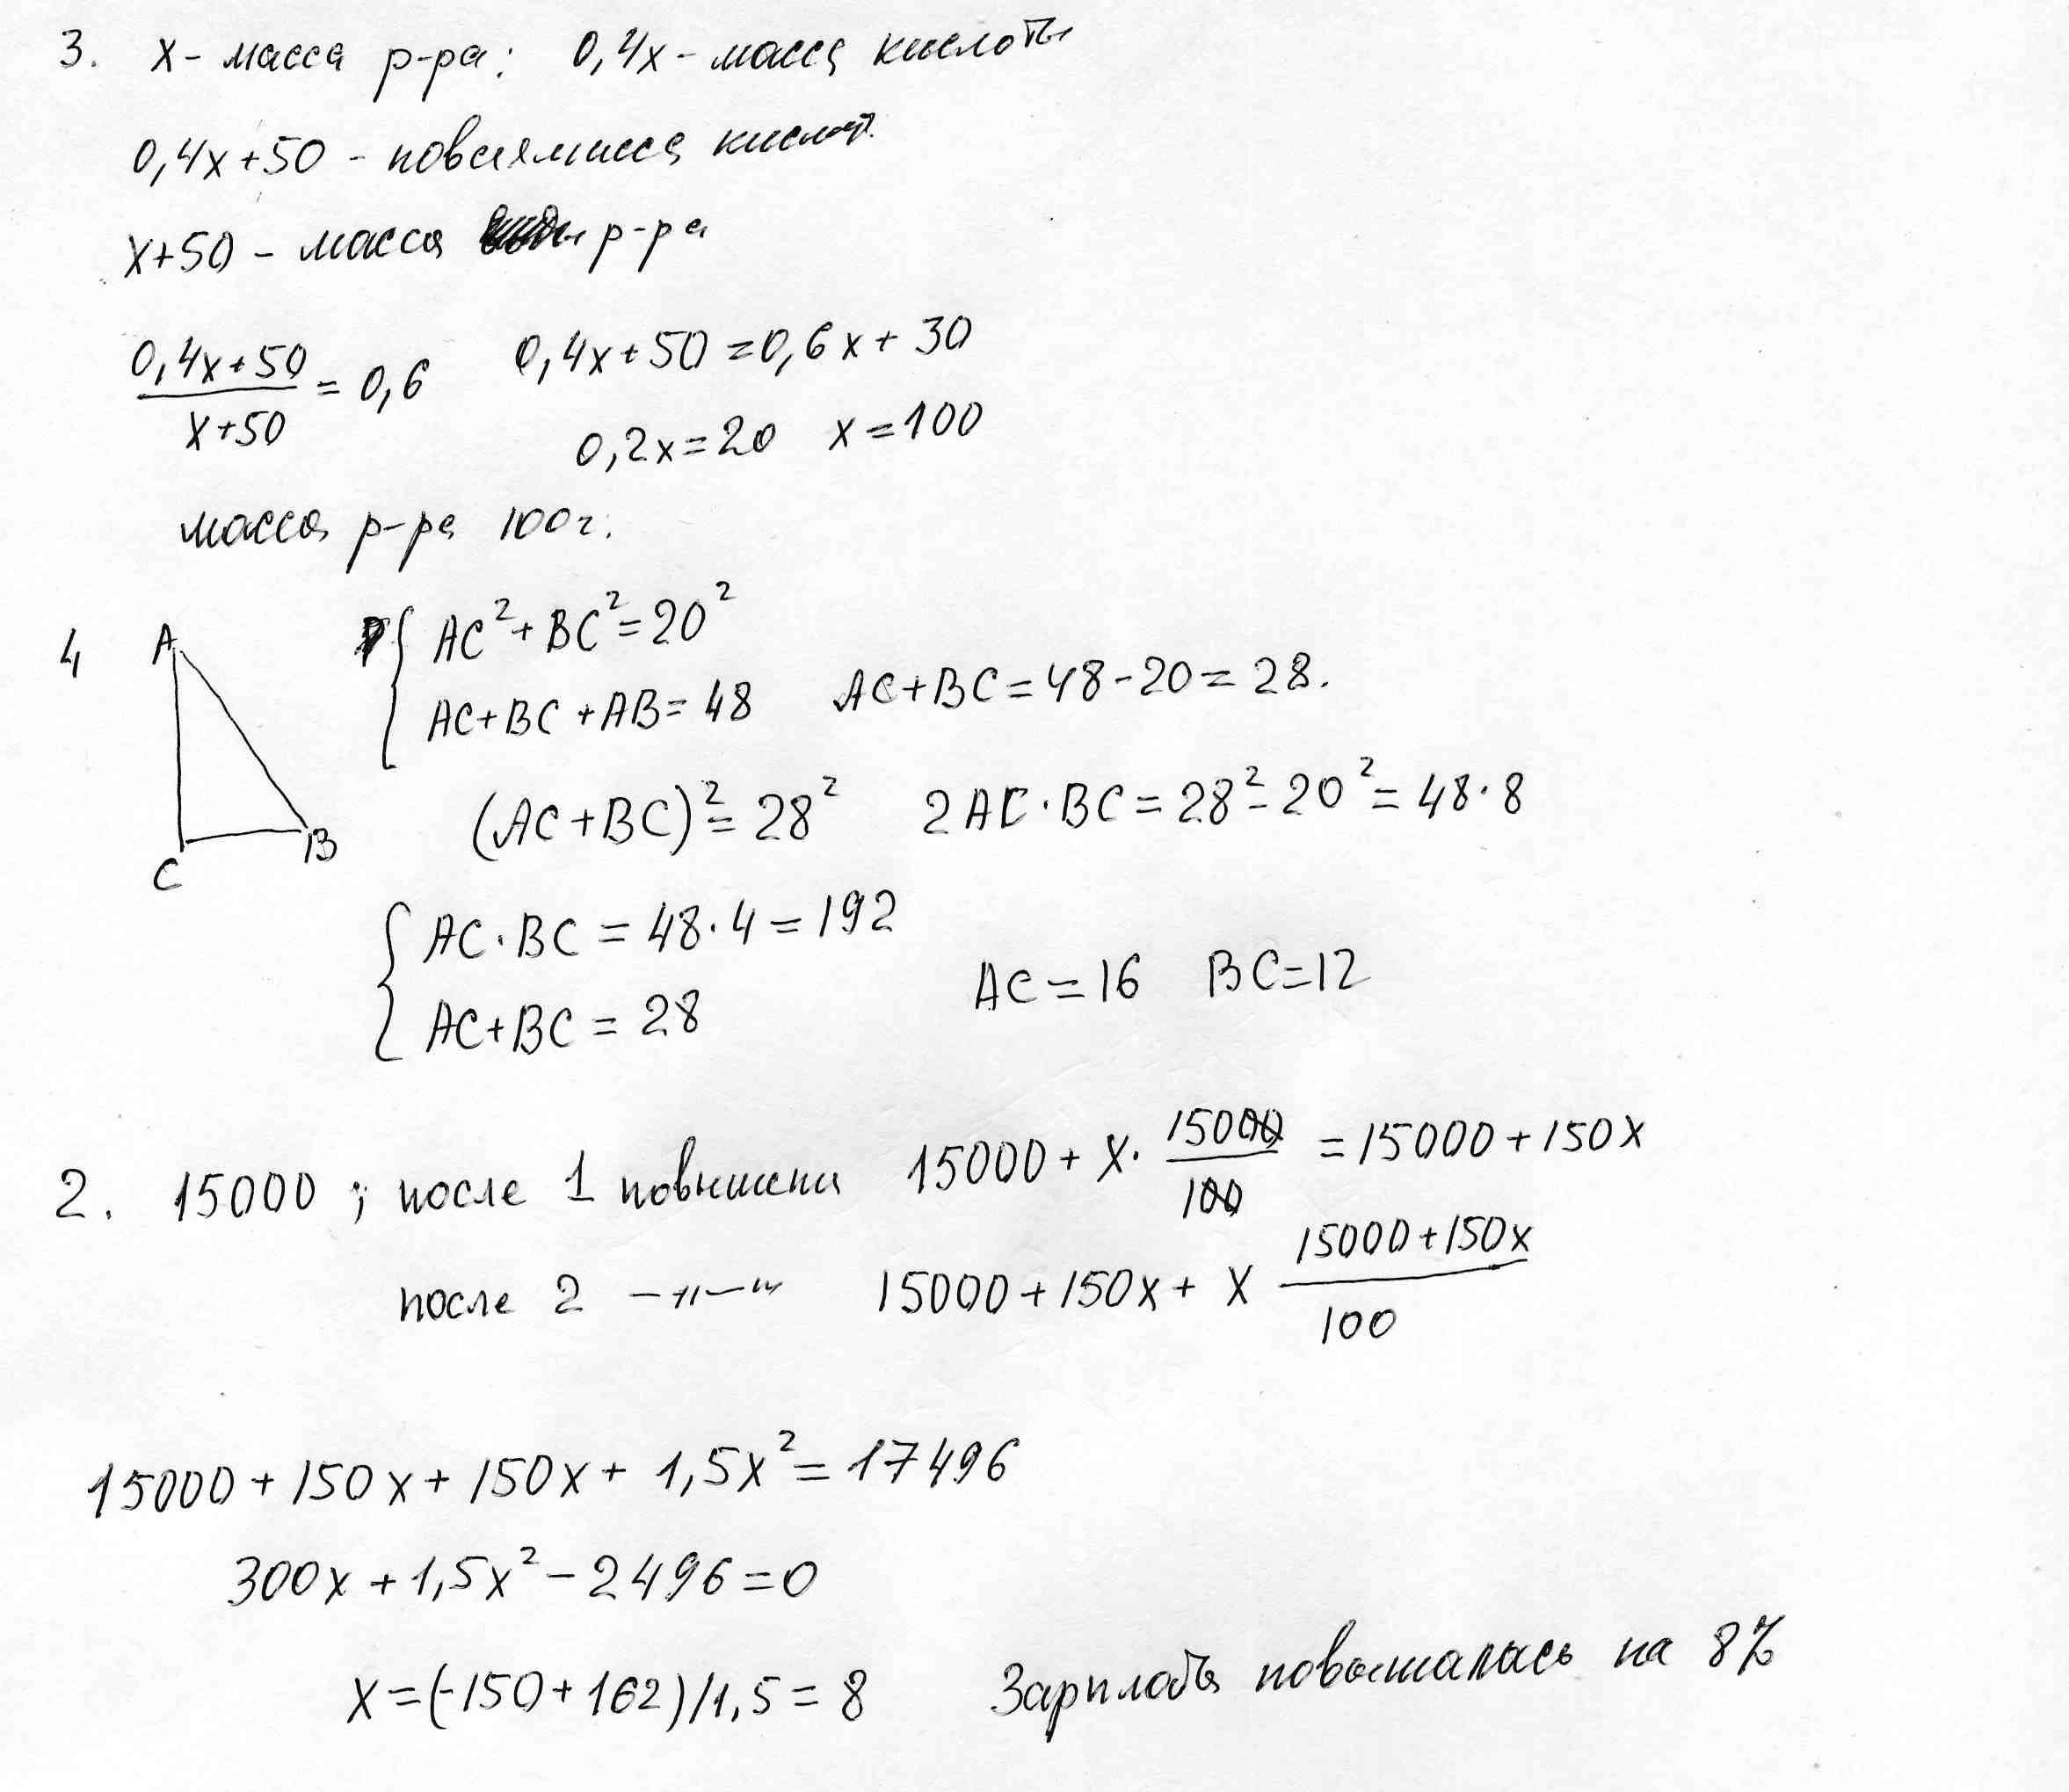 3. x - масса р-ра; 0,4x - масса кислоты
0,4x+50 - новая масса кислот.
x+50 - масса р-ра
(0,4x+50)/(x+50) = 0,6 0,4x+50=0,6x+30
0,2x=20 x=100
масса р-ра 100г.
4 A B C
{ AC²+BC²=20²
AC+BC+AB=48 AC+BC=48-20=28.
(AC+BC)²=28² 2AC·BC=28²-20²=48·8
{ AC·BC=48·4=192
AC+BC=28 AC=16 BC=12
2. 15000; после 1 повышени 15000+x·15000/100=15000+150x
после 2 —"—" 15000+150x+x (15000+150x)/100
15000+150x+150x+1,5x²=17496
300x+1,5x²-2496=0
x=(-150+162)/1,5=8 Зарплата повышалась на 8%